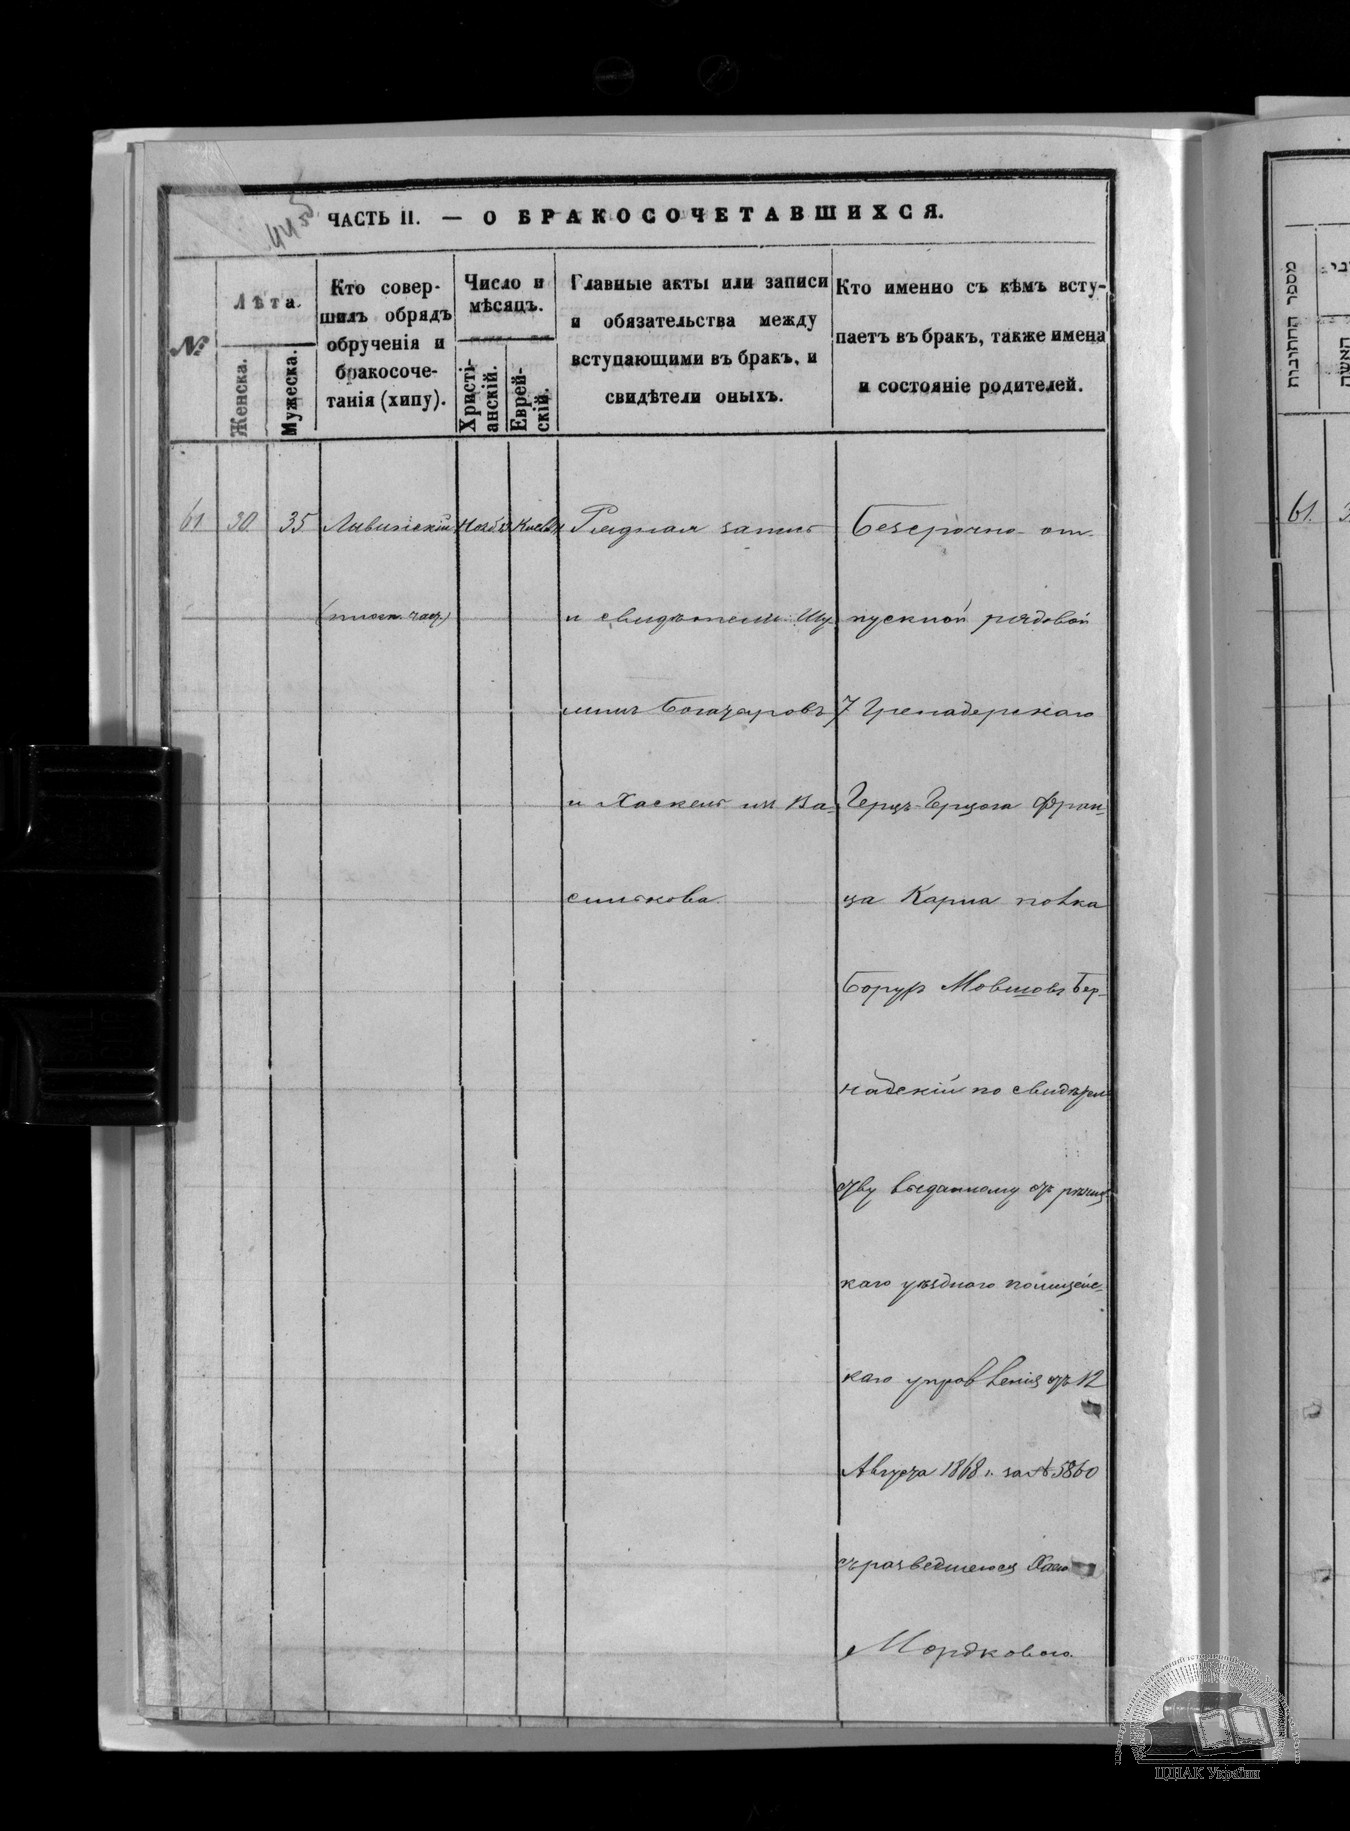 445
ЧАСТЬ II. — О БРАКОСОЧЕТАВШИХСЯ.
№
Лѣта.
Женска.
Мужеска.
Кто совер-
шилъ обрядъ
обрученія и
бракосоче-
танія (хипу).
Число и
мѣсяцъ.
Христі-
анскій.
Еврей-
скій.
Главные акты или записи
и обязательства между
вступающими въ бракъ, и
свидѣтели оныхъ.
Кто именно съ кѣмъ всту-
паетъ въ бракъ, также имена
и состояніе родителей.
61
30
35
Рядная запись
и свидѣтели Шу
и Хаскель изъ Ва-
силькова.
Безсрочно-от-
пускной рядовой
7 Гренадерскаго
Герцъ-Герцога Фран-
ца Карла полка
Борух Мовшовъ Бер-
надскій по свидѣтел
ству выданному отъ
каго уѣзднаго полицейс-
каго управленія отъ 12
Августа 1868 г. за № 5860
съ разведшеюся
Мордковою.
מספר החתונות
האשה
61.
ЦДІАК України